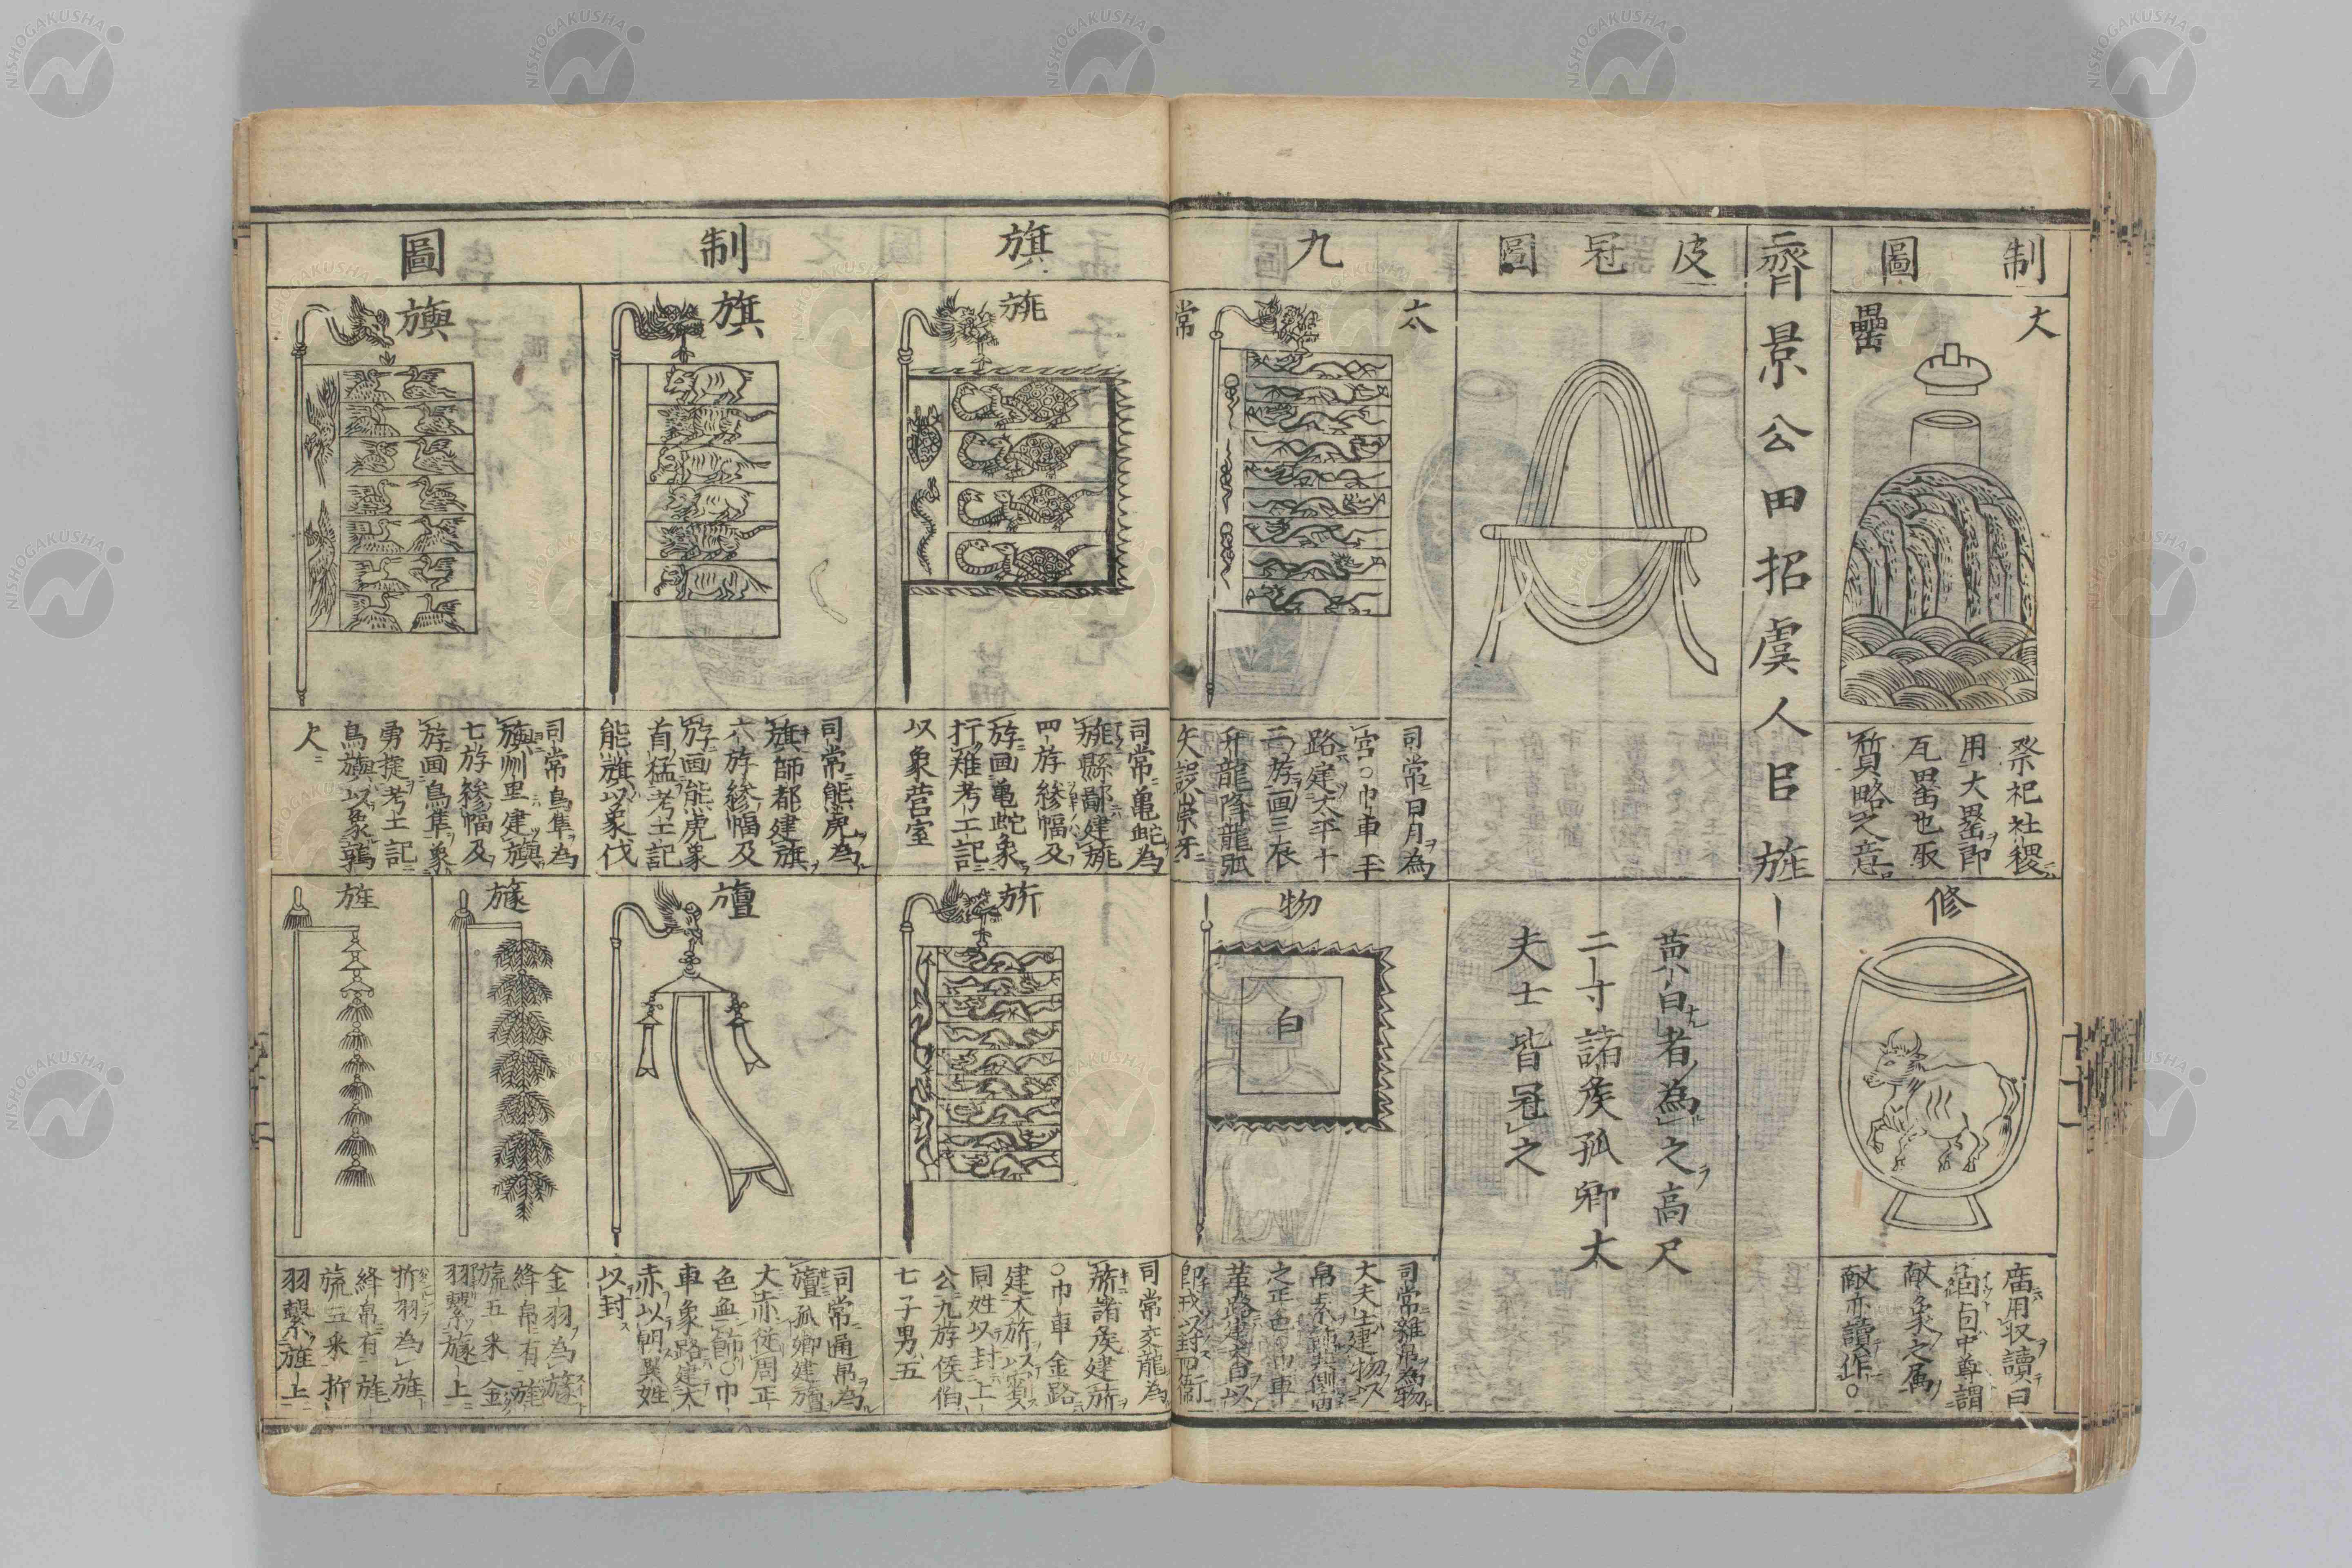 制圖
大罍
祭祀社稷
用大罍即
瓦罍也取
質略之意
修
廟用収讀曰
卣卣中尊謂
献象之屬
献亦讀作〇
齊景公田招虞人㠯旌
皮冠圖
黄白者為之高尺
二寸諸矦孤卿太
夫士皆冠之
九旗制圖
太常
司常日月為
常〇巾車王
路建太平十
二斿画三辰
升龍降龍弧
矢設崇牙
物
白
司常雜帛為物
大夫士建物以
帛素飾其側白
之正色巾車
革路建大白以
即戎以封四衛
旐
司常亀蛇為
旐縣鄙建旐
四斿縿幅及
斿画亀蛇象
行難考工記
以象营室
旂
司常交龍為
旂諸矦建旂
〇巾車金路
建大旂以賓
同姓以封上
公九斿侯伯
七子男五
旗
司常能虎為
旗師都建旗
六斿縿幅及
斿画能虎象
首猛考工記
能旗以象伐
旜
司常通帛為
旜孤卿建旜
大赤從周正
色無飾〇巾
車象路建大
赤以朝異姓
以封
旟
司常鳥隼為
旟州里建旟
七斿縿幅及
斿画鳥隼象
勇捷考工記
鳥旟以象鶉
火
旞
金羽為旞
絳帛有旄
旒五采金
羽繫旞上
旌
折羽為旌
絳帛有旄
旒五采折
羽繫旌上
NISHOGAKUSHA